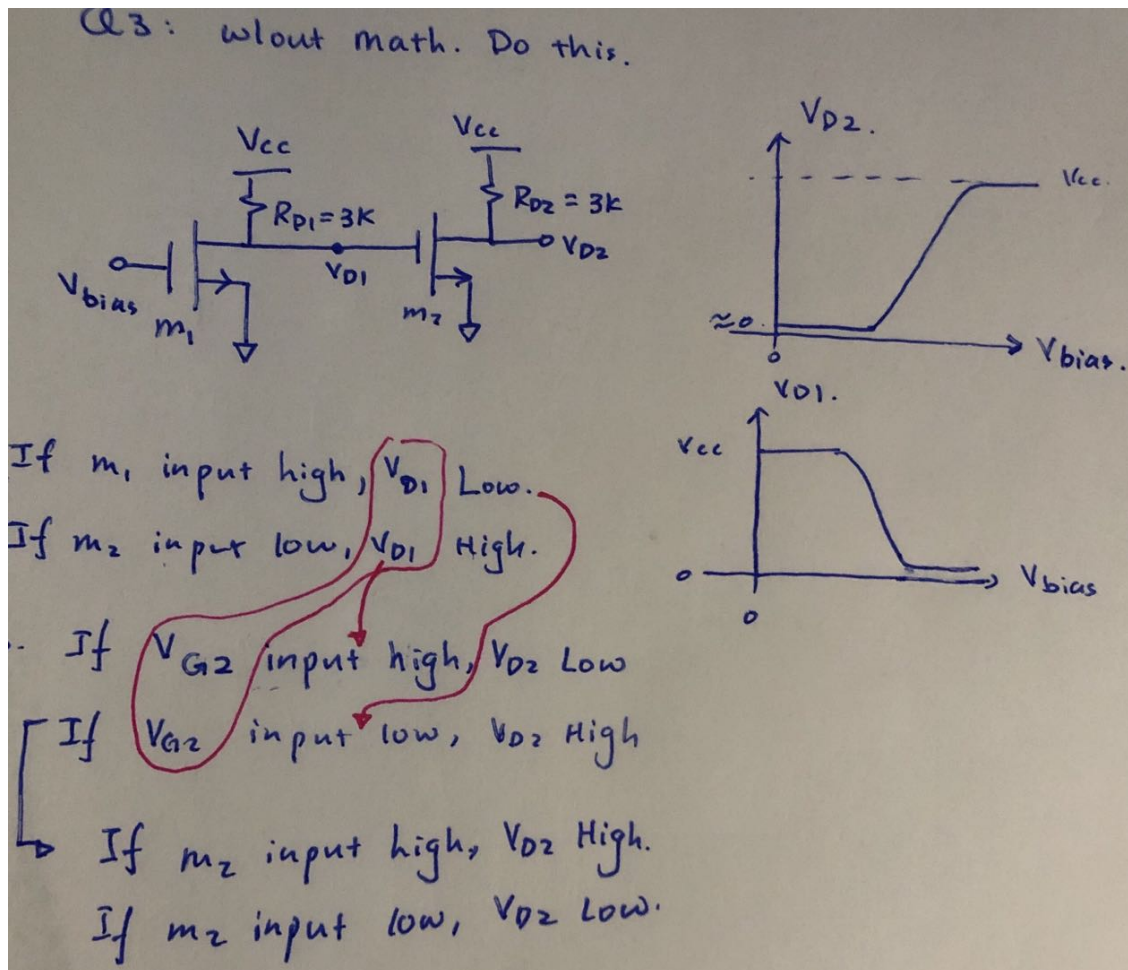 Q3: w/out math. Do this.
Vcc
Vcc
RD1 = 3K
RD2 = 3K
Vbias
m1
VD1
m2
VD2
VD2.
Vcc.
≈0.
0
Vbias.
VD1.
Vcc
0
0
Vbias
If m1 input high, VD1 Low.
If m2 input low, VD1 High.
If VG2 input high, VD2 Low
If VG2 input low, VD2 High
If m2 input high, VD2 High.
If m2 input low, VD2 Low.